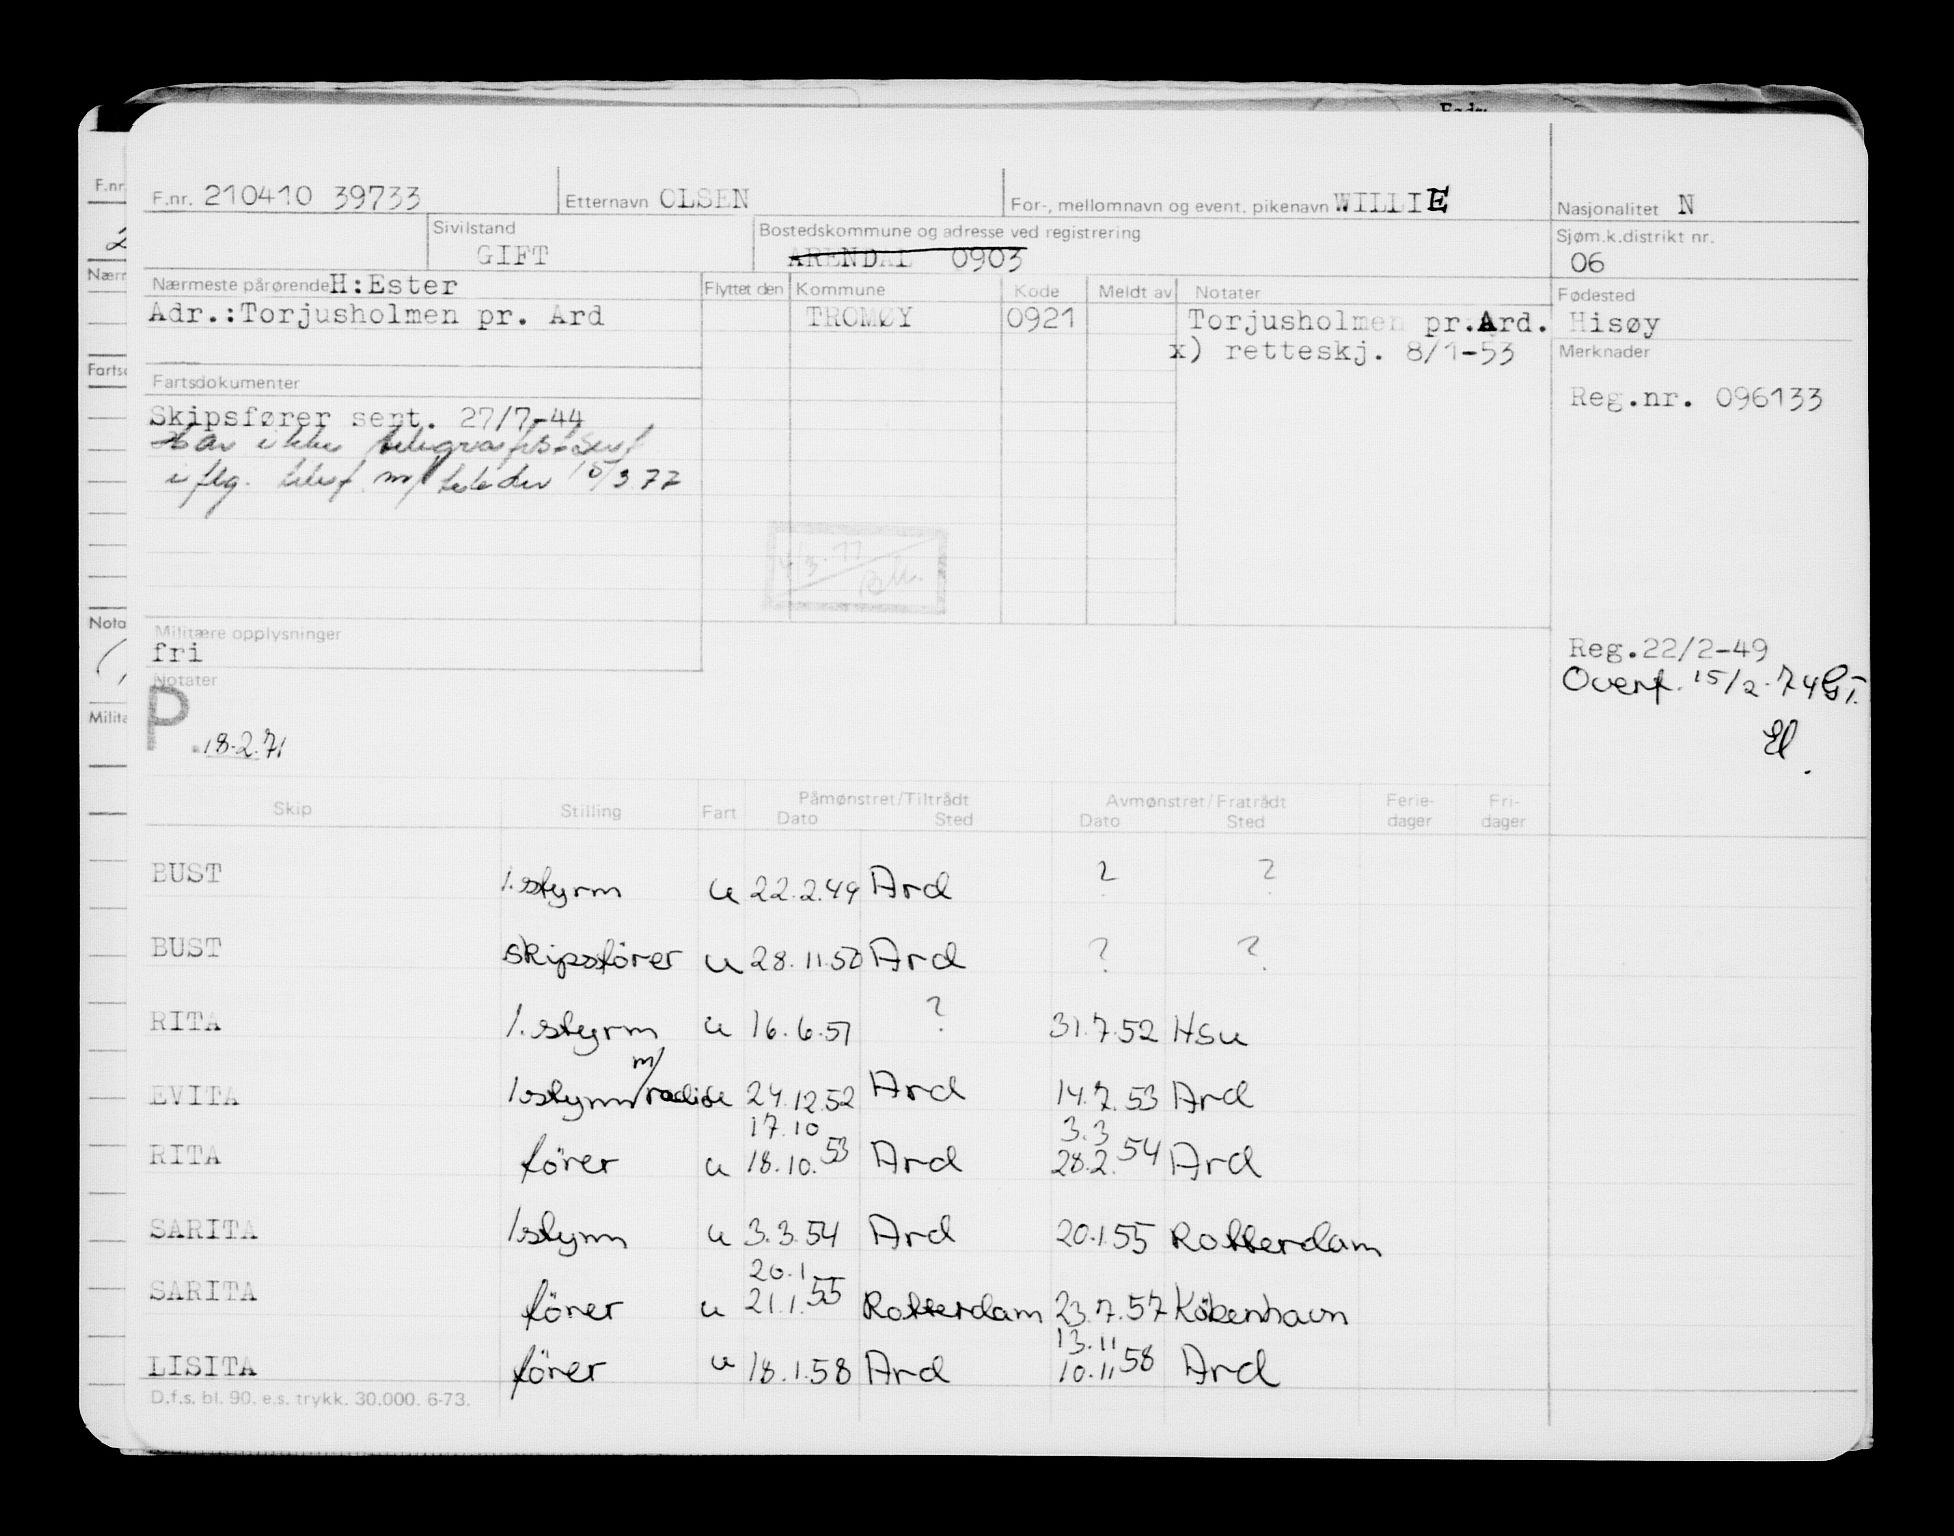 F.nr. 210410 39733 Etternavn OLSEN For-, mellomnavn og event. pikenavn WILLIE Nasjonalitet N
Sivilstand GIFT Bostedskommune og adresse ved registrering ARENDAL 0903 Sjøm.k.distrikt nr. 06
Nærmeste pårørende H:Ester Flyttet den Kommune Kode Meldt av Notater Fødested
Adr.:Torjusholmen pr. Ard TROMØY 0921 Torjusholmen pr.Ard. Hisøy
x) retteskj. 8/1-53 Merknader
Fartsdokumenter Reg.nr. 096133
Skipsfører sert. 27/7-44
Har ikke telegrafistsert
i flg. telef. m/ 15/3 77
4/3.77
Militære opplysninger
fri
Reg.22/2-49
Notater Overf. 15/2.74 GT.
El.
P. 18.2.71
Skip Stilling Fart Påmønstret/Tiltrådt Dato Sted Avmønstret/Fratrådt Dato Sted Ferie-dager Fri-dager
BUST 1.styrm u 22.2.49 Ard ? ?
BUST skipsförer u 28.11.50 Ard ? ?
RITA 1.styrm u 16.6.51 ? 31.7.52 Hsu
EVITA 1styrm m/radio u 24.12.52 Ard 14.7.53 Ard
17.10 3.3
RITA förer u 18.10.53 Ard 28.2.54 Ard
SARITA 1styrm u 3.3.54 Ard 20.1.55 Rotterdam
20.1
SARITA förer u 21.1.55 Rotterdam 23.7.57 Köbenhavn
13.11
LISITA förer u 18.1.58 Ard 10.11.58 Ard
D.f.s. bl. 90. e.s. trykk. 30.000. 6-73.
F.nr
Nærm
Fartsd
Nota
Milita